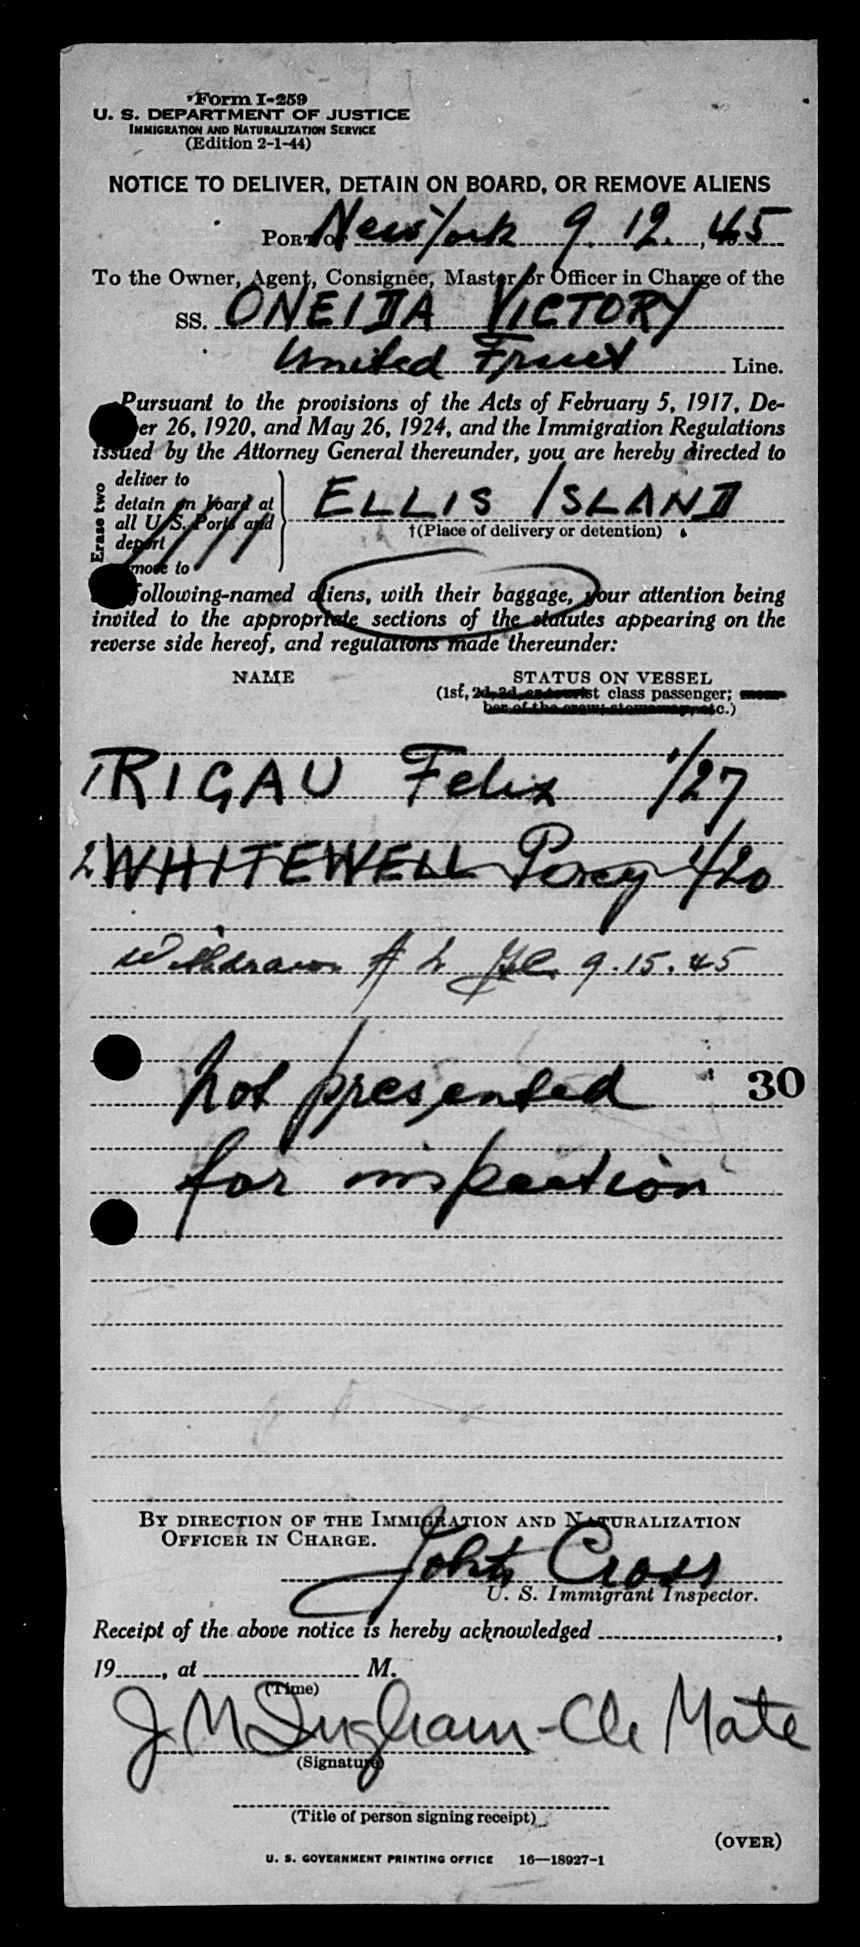 Form I-259
U. S. DEPARTMENT OF JUSTICE
IMMIGRATION AND NATURALIZATION SERVICE
(Edition 2-1-44)
NOTICE TO DELIVER, DETAIN ON BOARD, OR REMOVE ALIENS
PORT OF New York 9. 12. , 45
To the Owner, Agent, Consignee, Master or Officer in Charge of the
SS. ONEIDA VICTORY
United Fruit Line.
Pursuant to the provisions of the Acts of February 5, 1917, De-
er 26, 1920, and May 26, 1924, and the Immigration Regulations
issued by the Attorney General thereunder, you are hereby directed to
Erase two
deliver to
detain on board at
all U. S. Ports and
deport
move to
ELLIS ISLAND
†(Place of delivery or detention)
following-named aliens, with their baggage, your attention being
invited to the appropriate sections of the statutes appearing on the
reverse side hereof, and regulations made thereunder:
NAME STATUS ON VESSEL
(1st, 2d, 3d, or tourist class passenger; mem-
ber of the crew; stowaway, etc.)
1 RIGAU Felix 1/27
2 WHITEWELL Percy 1/20
Withdrawn # 2 9.15.45
30
not presented
for inspection
BY DIRECTION OF THE IMMIGRATION AND NATURALIZATION
OFFICER IN CHARGE.
John Cross
U. S. Immigrant Inspector.
Receipt of the above notice is hereby acknowledged ,
19 , at M.
(Time)
J M Ingham - Ch Mate
(Signature)
(Title of person signing receipt)
(OVER)
U. S. GOVERNMENT PRINTING OFFICE 16—18927-1